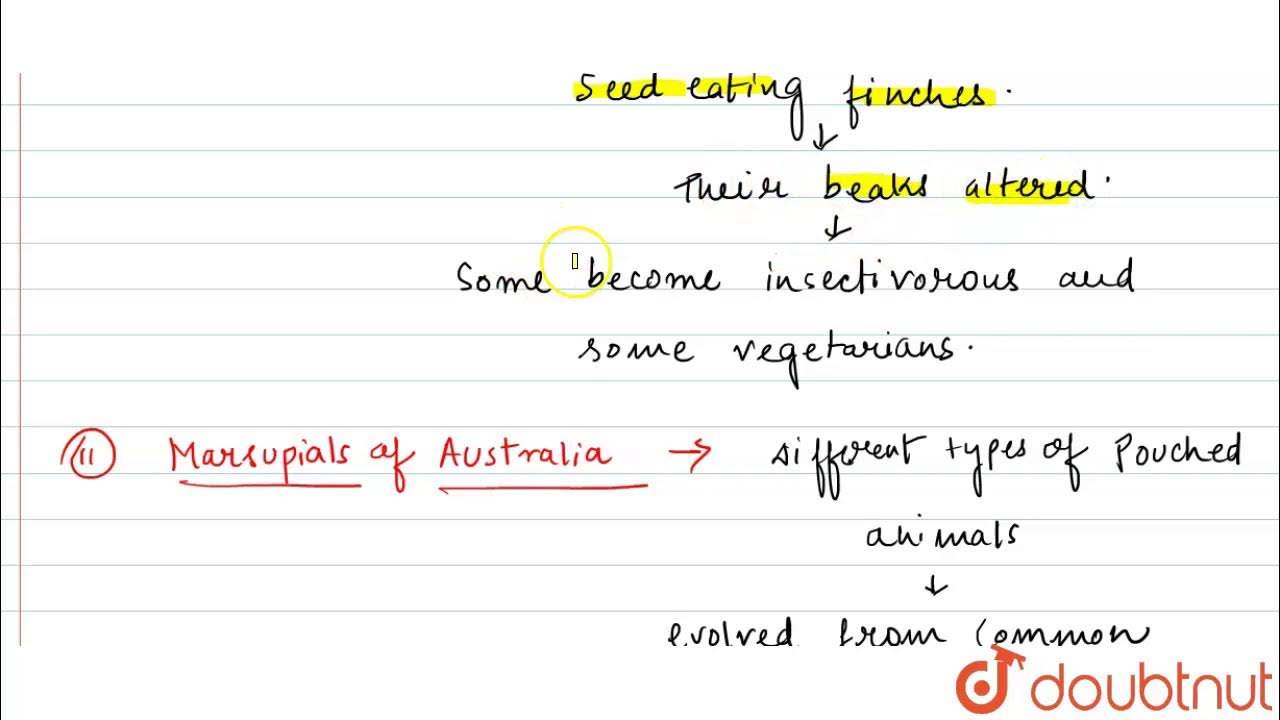 Seed eating finches.
↓
Their beaks altered.
↓
Some become insectivorous and
some vegetarians.
(ii) Marsupials of Australia → Different types of Pouched
animals
↓
evolved from Common
doubtnut